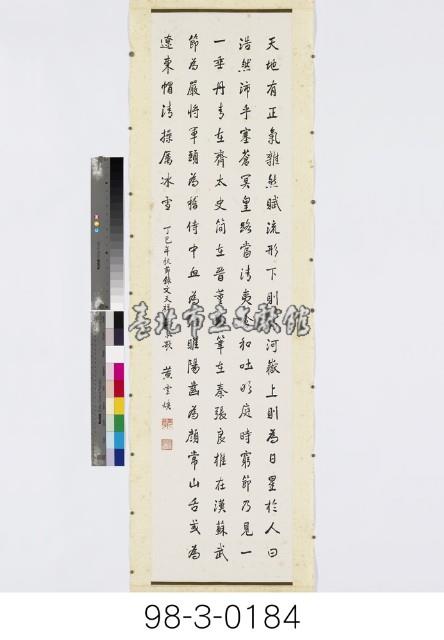 天地有正氣雜然賦流形下則為河嶽上則為日星於人曰
浩然沛乎塞蒼冥皇路當清夷含和吐明庭時窮節乃見一
一垂丹青在齊太史簡在晉董狐筆在秦張良椎在漢蘇武
節為嚴將軍頭為嵇侍中血為睢陽齒為顏常山舌或為
遼東帽清操厲冰雪 丁巳年秋節錄文天祥正氣歌 黃雲煥
臺北市立文獻館
98-3-0184